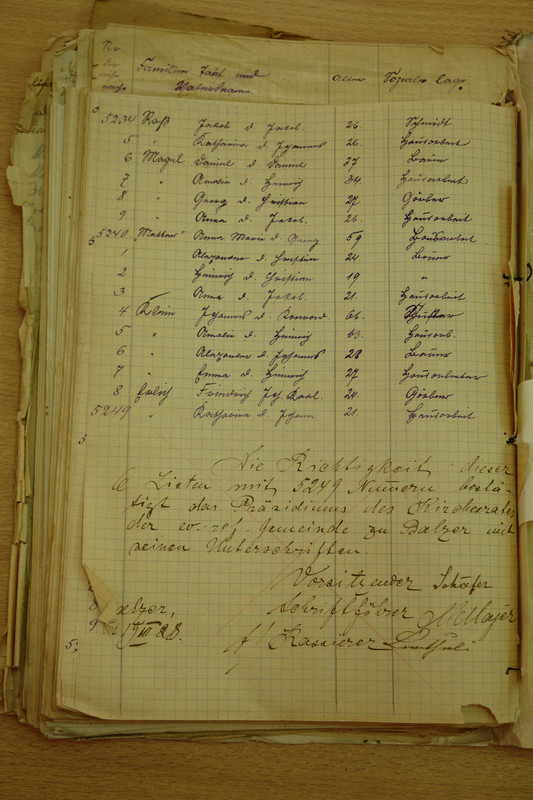 Nr.
der
Familien Tauf und
Vatersname.
Alter
Soziale Lage
5234 Roß Jakob d. Jakob. 26. Schmidt
5 " Katharina d. Johannes 26. Hausarbeit
6 Magel Daniel d. Daniel 37 Bauer
7 " Amalia d. Heinrich 34. Hausarbeit
8 " Georg d. Christian 27 Gärber
9 " Anna d. Jakob. 26. Hausarbeit
5240 Anna Maria d. Georg 59 Hausarbeit
1 Alexander d. Christian 24. Bauer
2 Heinrich d. Christian 19 "
3 Anna d. Jakob. 21. Hausarbeit
4 Klein Johannes d. Konrad. 61.
5 " Amalia d. Heinrich 63. Hausarb.
6 " Alexander d. Johannes 28 Bauer
7 " Emma d. Heinrich 27 Hausarbeiter
8 Erlich Friedrich Joh. Karl. 24. Gärber
5249 " Katharina d. Johann 21. Hausarbeit
Die Richtigkeit dieser
6 Listen mit 5249 Numern bestä-
tigt das Präsidiums des Kirchenrates
der ev.-ref. Gemeinde zu Balzer mit
seinen Unterschriften.
Vorsitzender Schäfer
alzer, Schriftführer
19 III 28. Kassierer